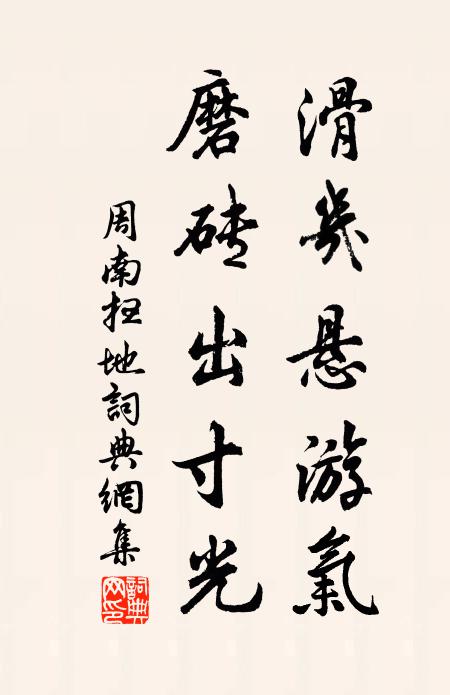 滑几悬游氣
磨砖出寸光
周南扫地詞典網集
詞典网印